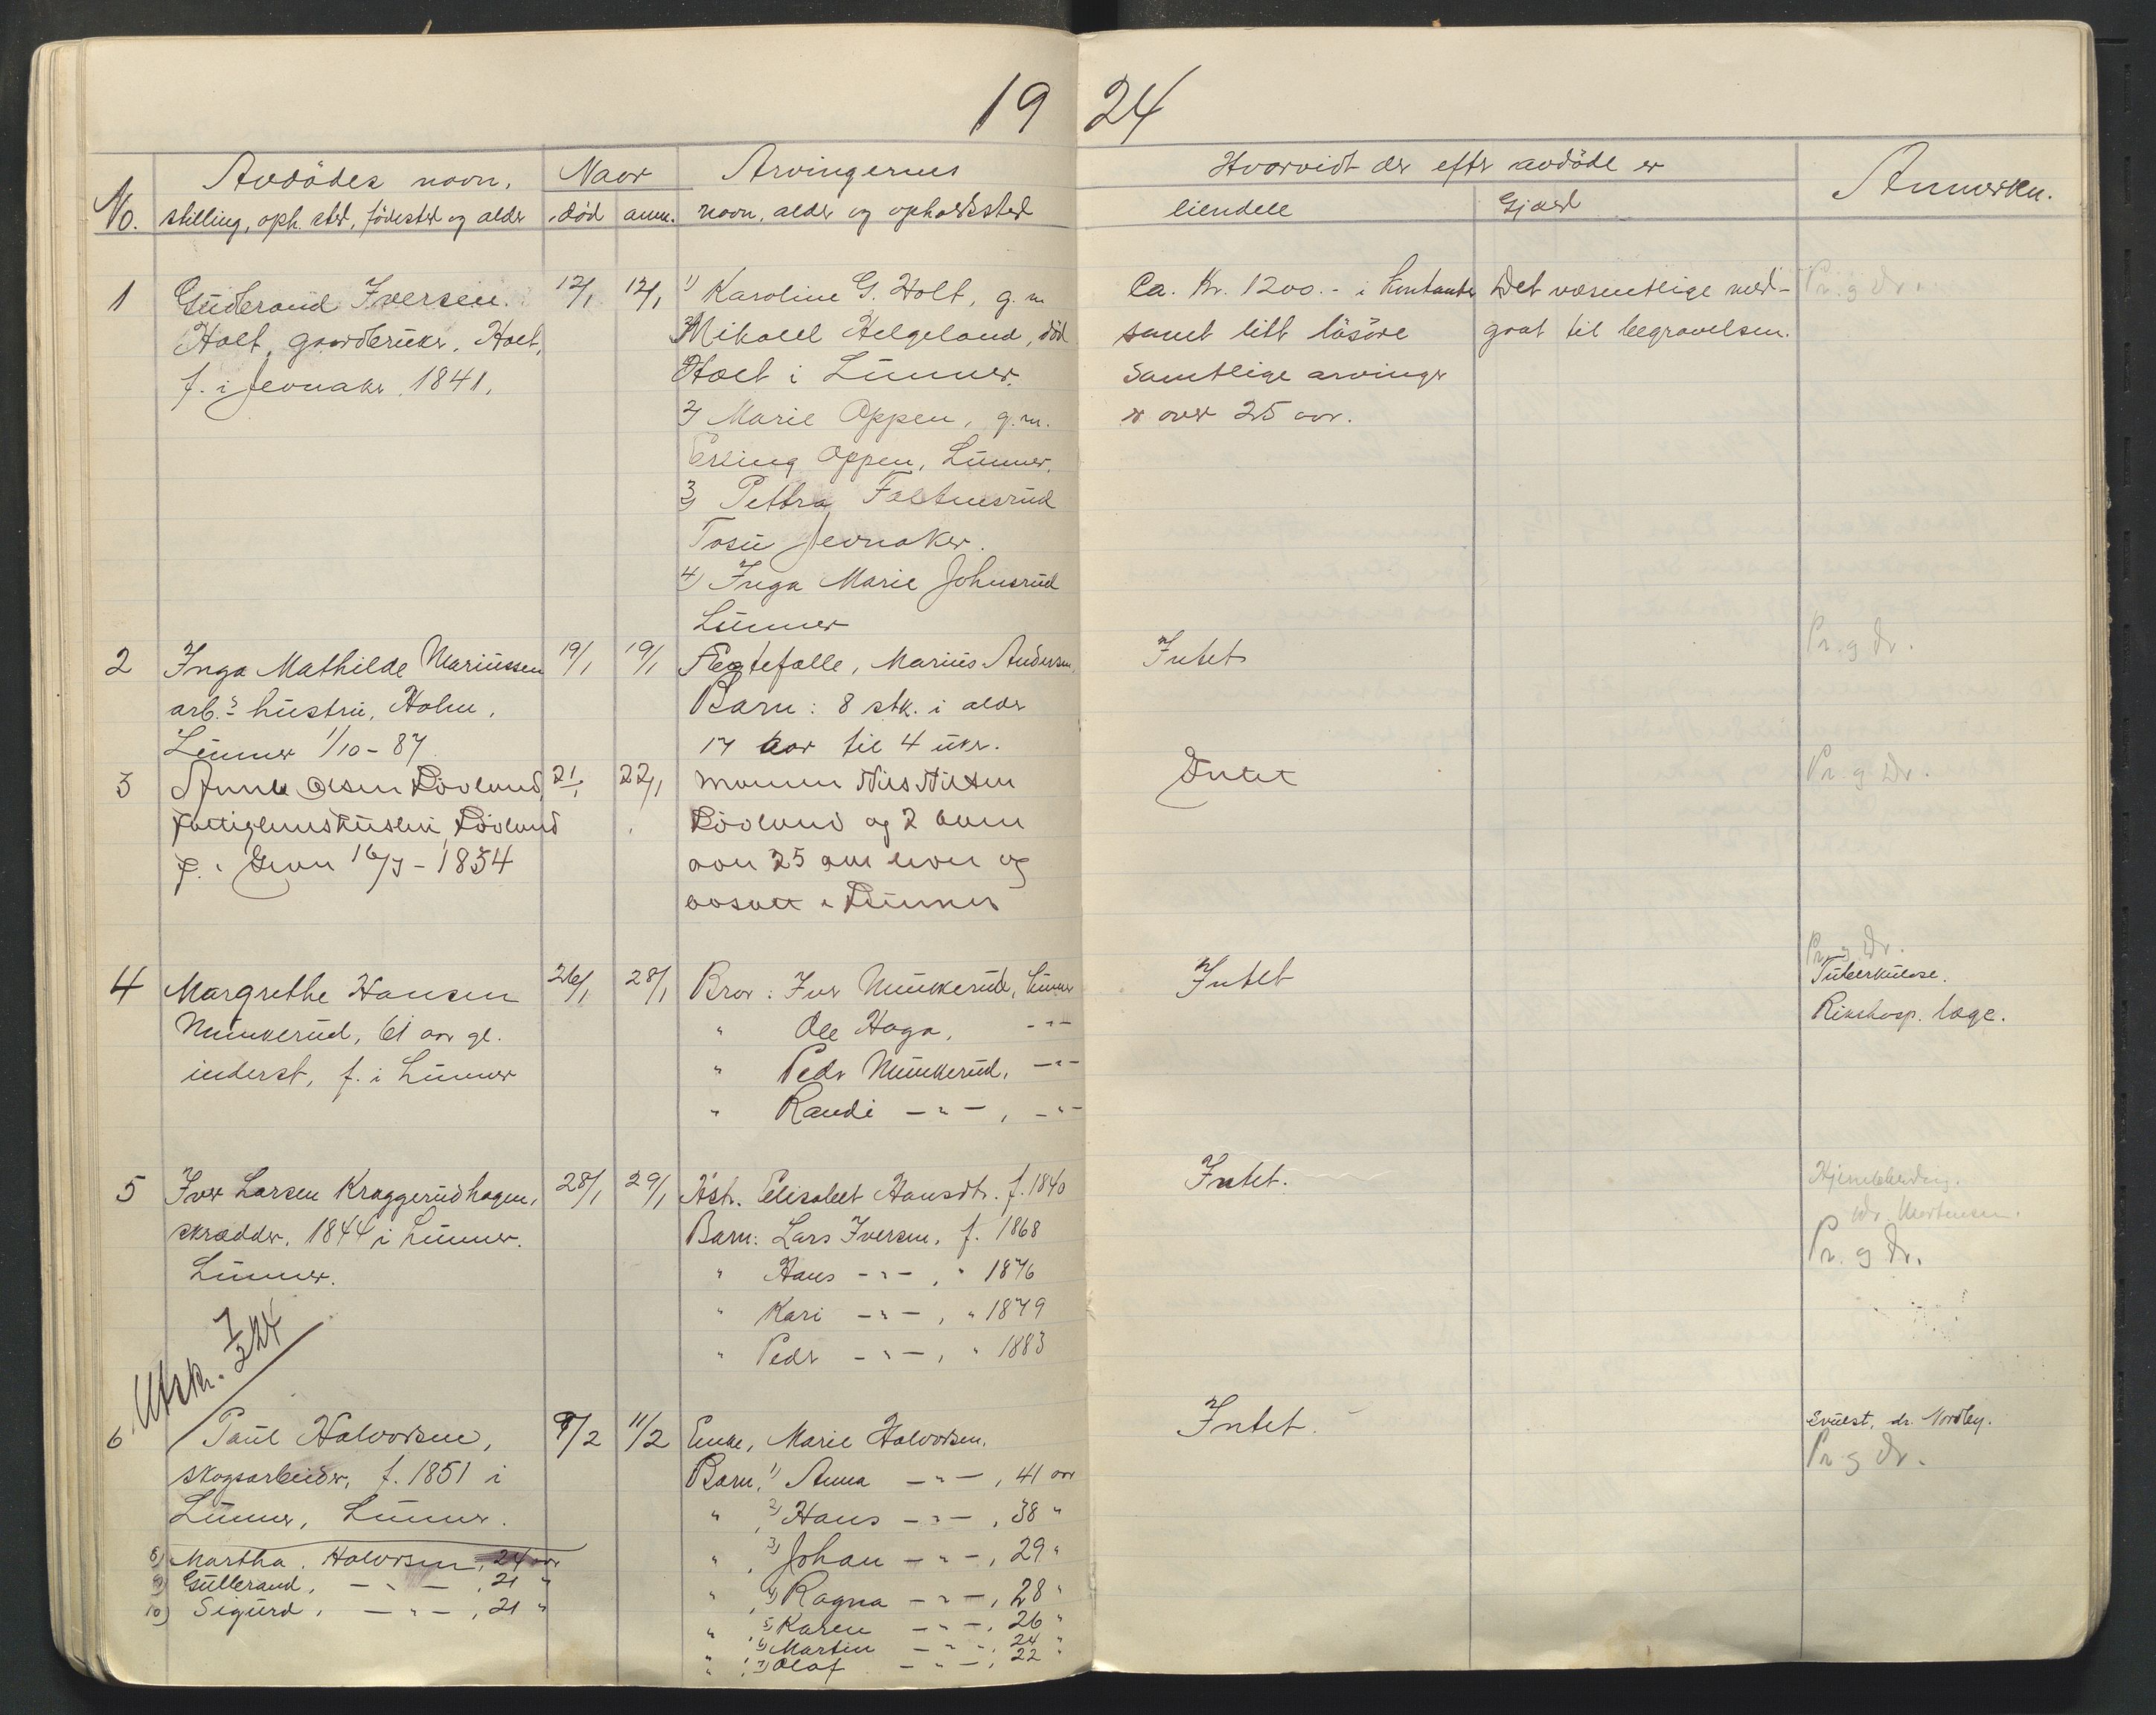 19 24
No. Avdödes navn, Naar Arvingernes Hvorvidt der efter avdöde er Anmerkn.
stilling, oph. sted, födested og alder död anm. navn, alder og opholdssted eiendele Gjæld
1 Gudbrand Iversen 12/1 12/1 1) Karoline G. Holt, g. m. Ca. Kr. 1200.- i kontanter Det væsentlige med- Pr. g Dr.
Holt, gaardbruker, Holt, Mikael Helgeland, död samt litt lösöre gaat til begravelsen.
f. i Jevnaker 1841. Holt i Lunner. Samtlige arvinger
2) Marie Oppen, g. m. er over 25 aar.
Erling Oppen, Lunner.
3) Pettra Faltinsrud
Tosu Jevnaker.
4) Inga Marie Johnsrud
Lunner
2 Inga Mathilde Mariussen 19/1 19/1 Egtefælle, Marius Andersen. Intet Pr. g Dr.
arb.s hustru, Holm, Barn: 8 stk. i alder
Lunner 1/10-87 17 aar til 4 uker.
3 Anne Olsen Lövlund, 21/1 22/1 Manden Nils Nilsen Intet Pr. g Dr.
fattiglemshustru Lövlund Lövlund og 2 barn
f. i Gran 16/7-1834 over 25 aar hver og
bosatt i Lunner
4 Margrethe Hansen 26/1 28/1 Bror: Iver Munkerud, Lunner Intet Pr. g Dr.
Munkerud, 61 aar gl. " Ole Haga, -"- Tuberkulose.
inderst, f. i Lunner " Peder Munkerud, -"- Rikshosp. læge.
" Randi -"-, -"-
5 Iver Larsen Kraggerudhagen, 28/1 29/1 Hstr. Elisabet Hansdtr. f. 1840 Intet. Hjerneblödning.
skrædder, 1844 i Lunner. Barn: Lars Iversen, f. 1868 Dr. Mortensen.
Lunner. " Hans -"-, " 1876 Pr. g Dr.
" Kari -"-, " 1879
" Peder -"-, " 1883
Utskr. 1/2 24
6 Paul Halvorsen, 8/2 11/2 Enke, Marie Halvorsen. Intet. Svulst, dr. Nordby.
skogsarbeider, f. 1851 i Barn, 1) Anna -"-, 41 aar Pr. g Dr.
Lunner, Lunner. " , 2) Hans -"-, 38 "
8) Martha. Halvorsen, 24 aar " , 3) Johan -"-, 29 "
9) Gulbrand, -"-, 21 " " , 4) Ragna -"-, 28 "
10) Sigurd, -"-, 21 " " , 5) Karen -"-, 26 "
" , 6) Martin -"-, 24 "
" , 7) Olaf -"-, 22 "